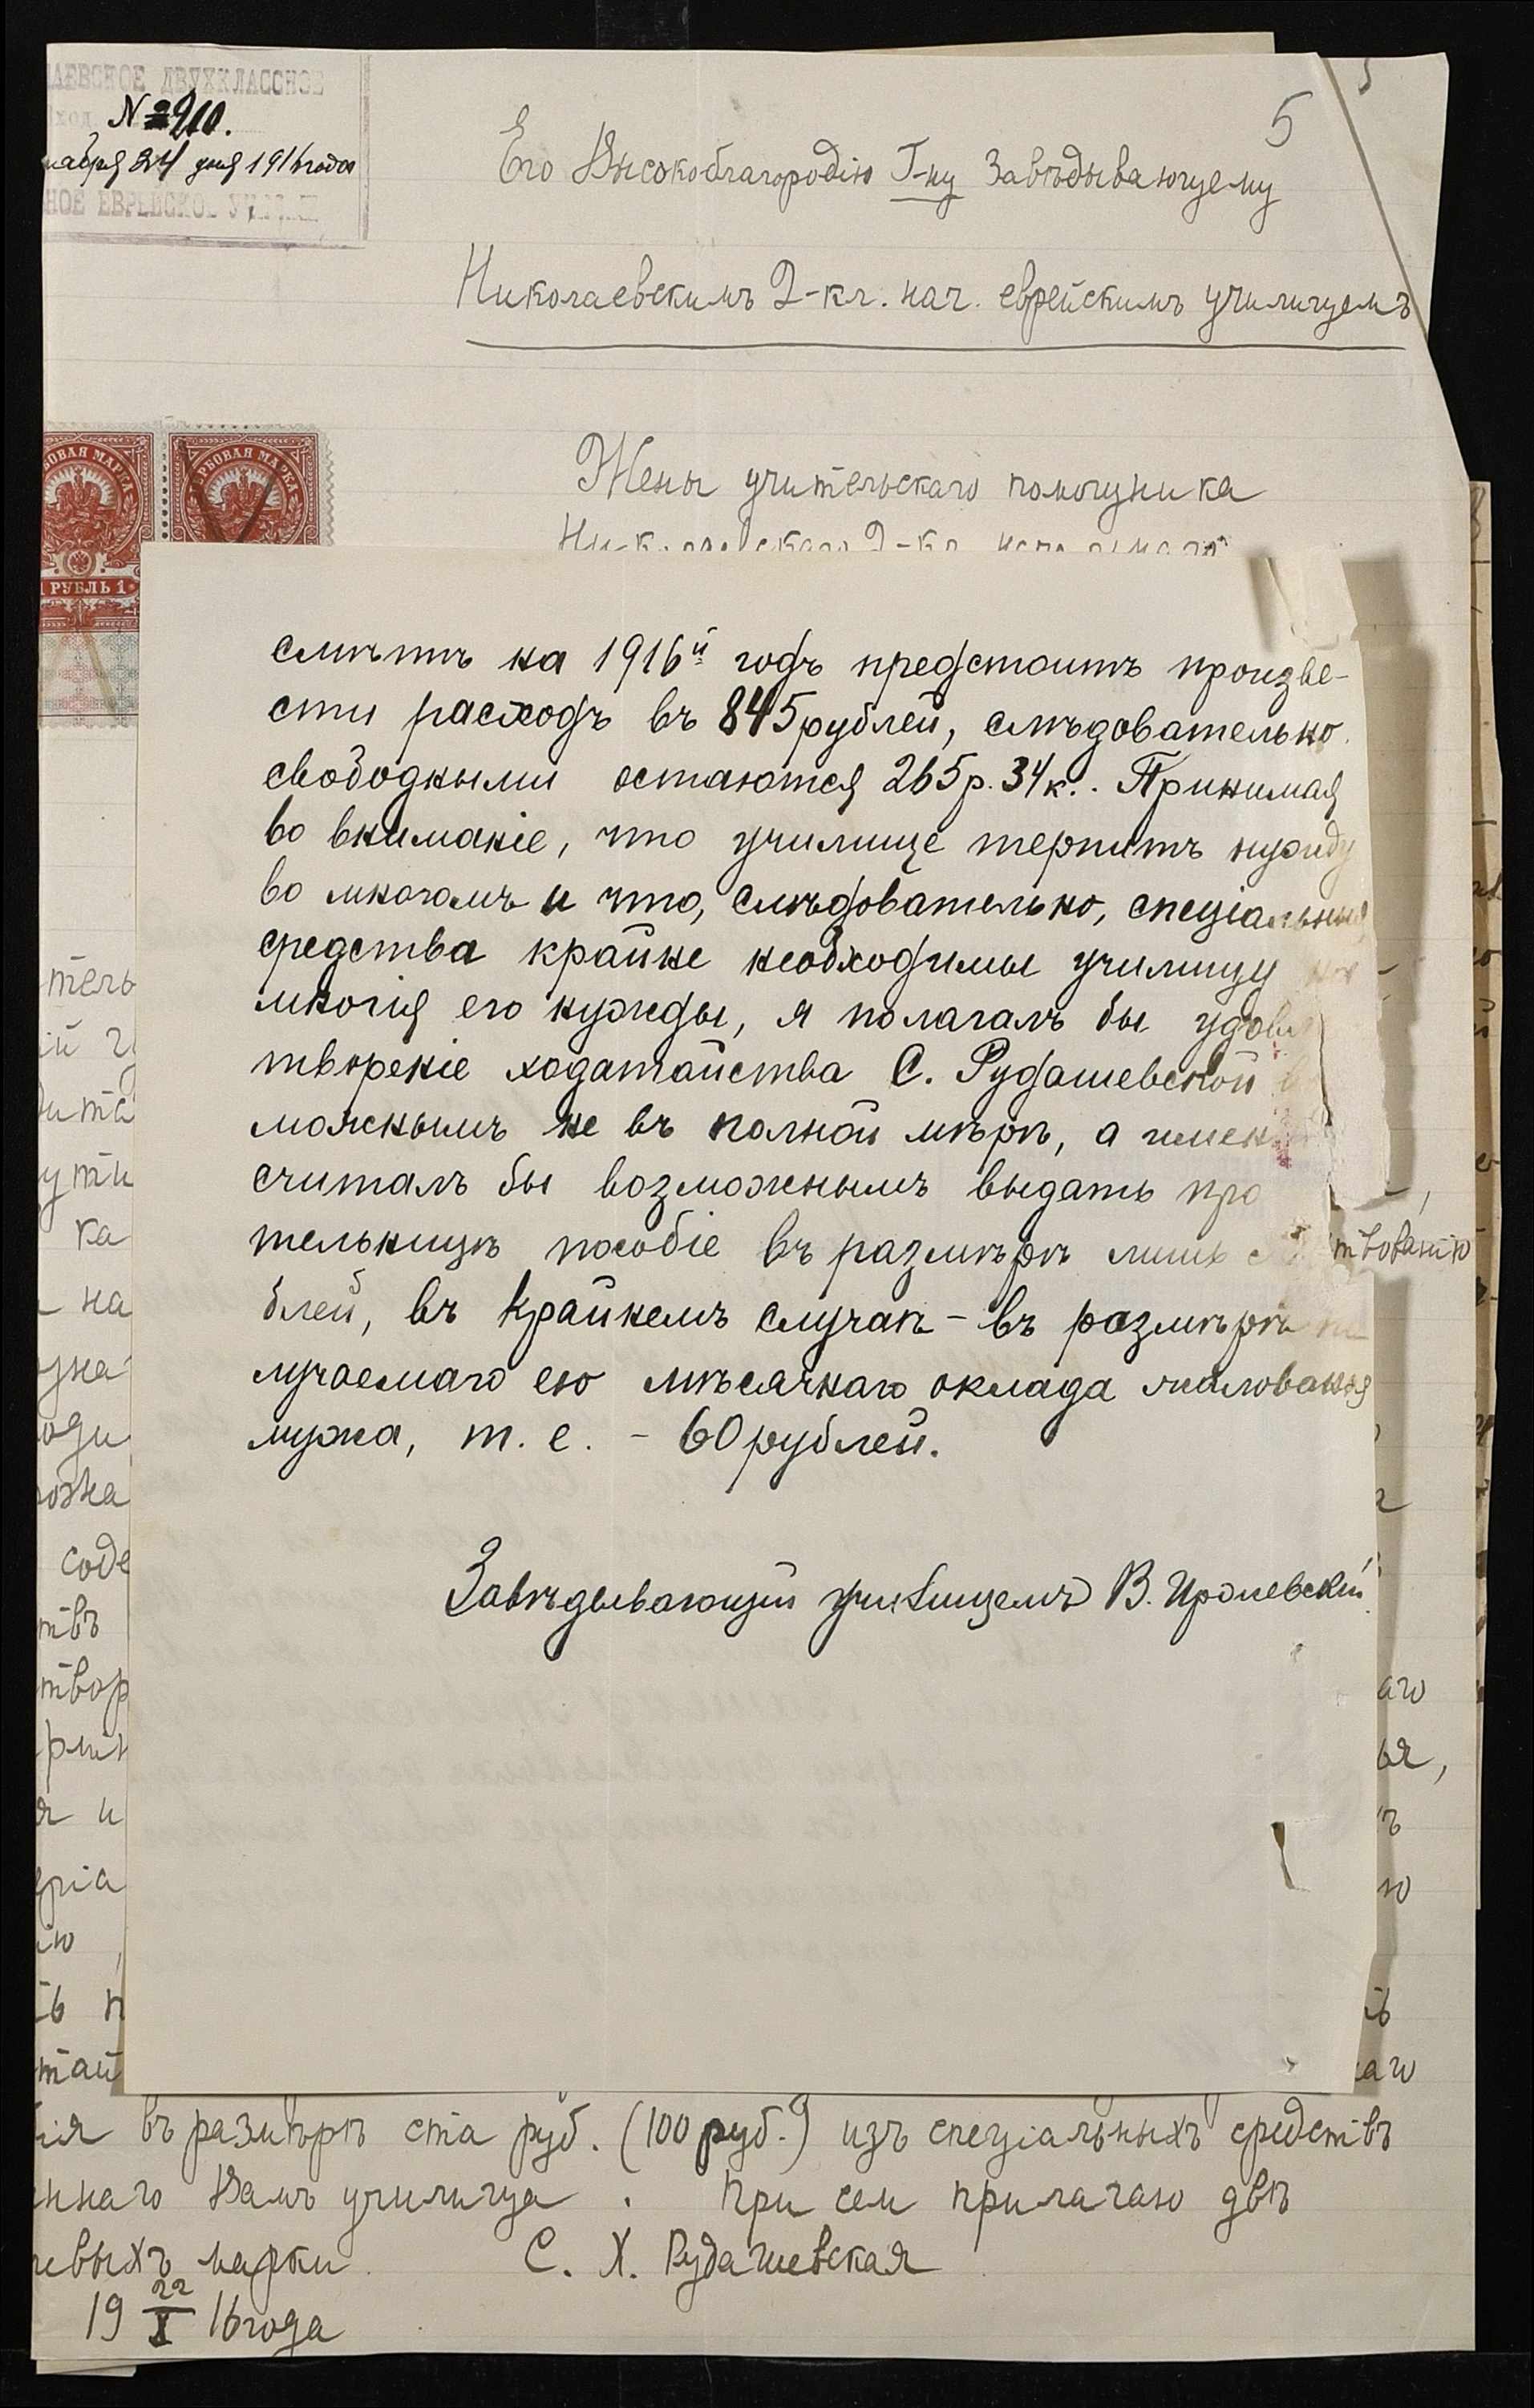 ДВУХКЛАССНОЕ
№ 210.
24 дня 1916 года
НОЕ ЕВРЕЙСКОЕ
5
Его Высокоблагородію Г-ну Завѣдывающему
Николаевскимъ 2-кл. нач. еврейскимъ училищемъ
Жены учительскаго помощника
2-кл.
БОВАЯ МАРКА
РБОВАЯ МАРКА
1 РУБЛЬ 1
смѣтѣ на 1916й годъ предстоитъ произве-
сти расходъ въ 845 рублей, слѣдовательно
свободными остаются 265 р. 34 к.. Принимая
во вниманіе, что училище терпитъ нужду
во многомъ и что, слѣдовательно, спеціальныя
средства крайне необходимы училищу
многія его нужды, я полагалъ бы удовле
твореніе ходатайства С. Рудашевской
можнымъ не въ полной мѣрѣ, а имен
считалъ бы возможнымъ выдать про
тельницѣ пособіе въ размѣрѣ лишь
твованію
блей, въ крайнемъ случаѣ – въ размѣрѣ по
лучаемаго ею мѣсячнаго оклада жалованья
мужа, т. е. – 60 рублей.
Завѣдывающій училищемъ В.
тель
ка
на
соде
твор
я и
аго
ья,
ію
тай
каго
ія въ размѣрѣ ста руб. (100 руб.) изъ спеціальныхъ средствъ
ннаго Вамъ училища . При сем прилагаю двѣ
евыхъ марки. С. Х. Рудашевская
19 22/X 16 года